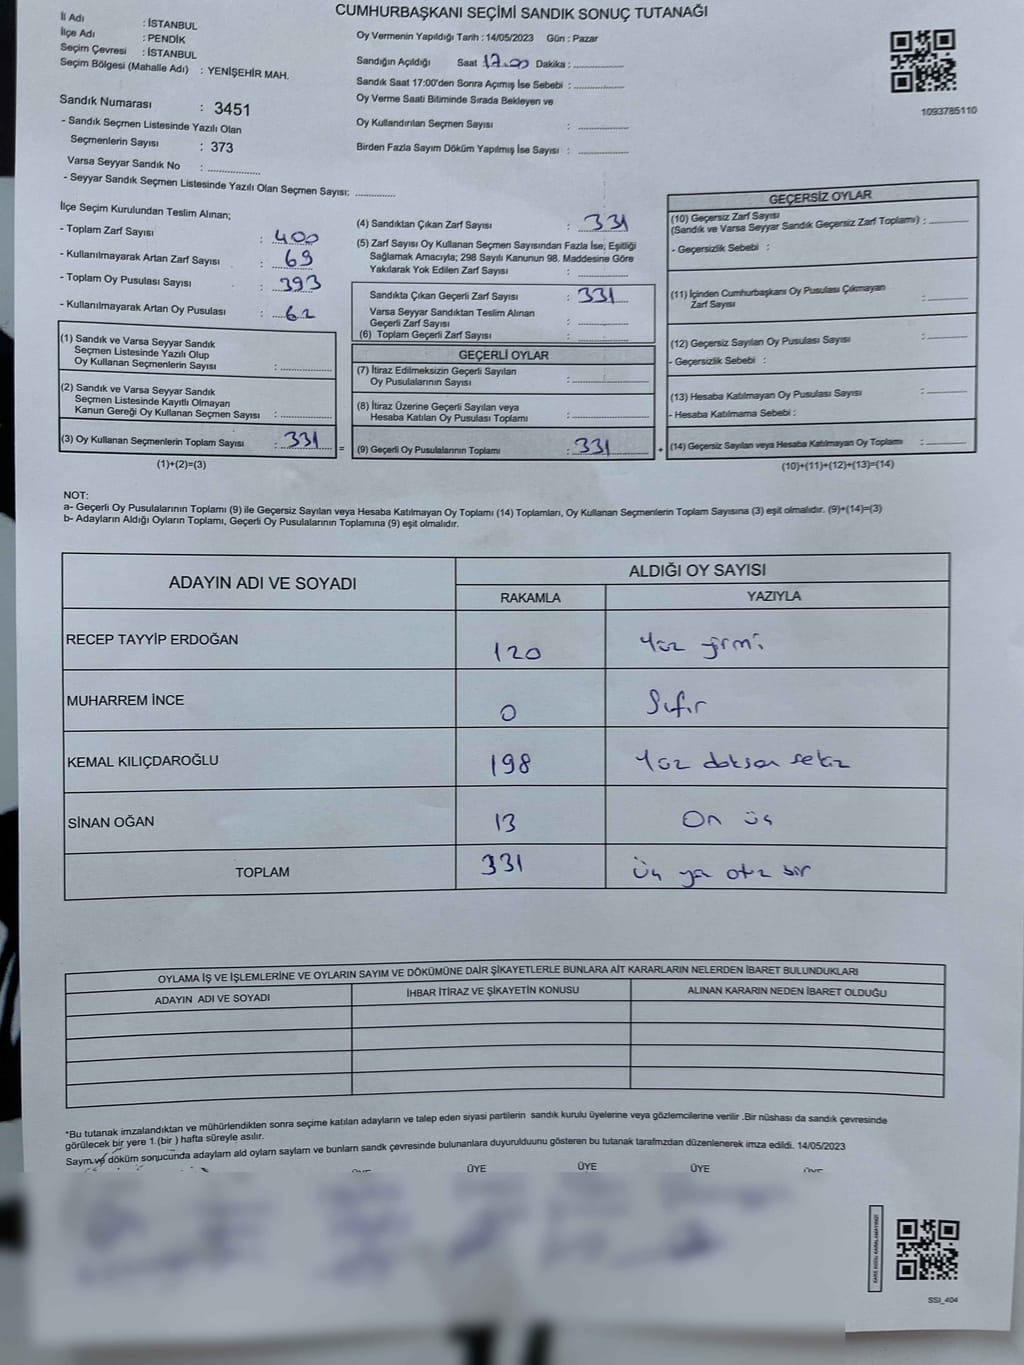 CUMHURBAŞKANI SEÇİMİ SANDIK SONUÇ TUTANAĞI
İl Adı : İSTANBUL
İlçe Adı : PENDİK
Seçim Çevresi : İSTANBUL
Seçim Bölgesi (Mahalle Adı) : YENİŞEHİR MAH.
Sandık Numarası : 3451
- Sandık Seçmen Listesinde Yazılı Olan
Seçmenlerin Sayısı : 373
Varsa Seyyar Sandık No :
- Seyyar Sandık Seçmen Listesinde Yazılı Olan Seçmen Sayısı:
Oy Vermenin Yapıldığı Tarih : 14/05/2023 Gün : Pazar
Sandığın Açıldığı Saat 17.00 Dakika :
Sandık Saat 17:00'den Sonra Açımış İse Sebebi :
Oy Verme Saati Bitiminde Sırada Bekleyen ve
Oy Kullandırılan Seçmen Sayısı :
Birden Fazla Sayım Döküm Yapılmış İse Sayısı :
1093785110
İlçe Seçim Kurulundan Teslim Alınan;
- Toplam Zarf Sayısı : 400
- Kullanılmayarak Artan Zarf Sayısı : 69
- Toplam Oy Pusulası Sayısı : 393
- Kullanılmayarak Artan Oy Pusulası : 62
(1) Sandık ve Varsa Seyyar Sandık
Seçmen Listesinde Yazılı Olup
Oy Kullanan Seçmenlerin Sayısı :
(2) Sandık ve Varsa Seyyar Sandık
Seçmen Listesinde Kayıtlı Olmayan
Kanun Gereği Oy Kullanan Seçmen Sayısı :
(3) Oy Kullanan Seçmenlerin Toplam Sayısı : 331 =
(1)+(2)=(3)
(4) Sandıktan Çıkan Zarf Sayısı : 331
(5) Zarf Sayısı Oy Kullanan Seçmen Sayısından Fazla İse, Eşitliği
Sağlamak Amacıyla; 298 Sayılı Kanunun 98. Maddesine Göre
Yakılarak Yok Edilen Zarf Sayısı :
Sandıkta Çıkan Geçerli Zarf Sayısı : 331
Varsa Seyyar Sandıktan Teslim Alınan
Geçerli Zarf Sayısı :
(6) Toplam Geçerli Zarf Sayısı :
GEÇERLİ OYLAR
(7) İtiraz Edilmeksizin Geçerli Sayılan
Oy Pusulalarının Sayısı :
(8) İtiraz Üzerine Geçerli Sayılan veya
Hesaba Katılan Oy Pusulası Toplamı :
(9) Geçerli Oy Pusulalarının Toplamı : 331 +
GEÇERSİZ OYLAR
(10) Geçersiz Zarf Sayısı
(Sandık ve Varsa Seyyar Sandık Geçersiz Zarf Toplamı) :
- Geçersizlik Sebebi :
(11) İçinden Cumhurbaşkanı Oy Pusulası Çıkmayan
Zarf Sayısı :
(12) Geçersiz Sayılan Oy Pusulası Sayısı :
- Geçersizlik Sebebi :
(13) Hesaba Katılmayan Oy Pusulası Sayısı :
- Hesaba Katılmama Sebebi :
(14) Geçersiz Sayılan veya Hesaba Katılmayan Oy Toplamı :
(10)+(11)+(12)+(13)=(14)
NOT:
a- Geçerli Oy Pusulalarının Toplamı (9) ile Geçersiz Sayılan veya Hesaba Katılmayan Oy Toplamı (14) Toplamları, Oy Kullanan Seçmenlerin Toplam Sayısına (3) eşit olmalıdır. (9)+(14)=(3)
b- Adayların Aldığı Oyların Toplamı, Geçerli Oy Pusulalarının Toplamına (9) eşit olmalıdır.
ADAYIN ADI VE SOYADI ALDIĞI OY SAYISI
RAKAMLA YAZIYLA
RECEP TAYYİP ERDOĞAN 120 Yüz yirmi
MUHARREM İNCE 0 Sıfır
KEMAL KILIÇDAROĞLU 198 Yüz doksan sekiz
SİNAN OĞAN 13 On üç
TOPLAM 331 Üç yüz otuz bir
OYLAMA İŞ VE İŞLEMLERİNE VE OYLARIN SAYIM VE DÖKÜMÜNE DAİR ŞİKAYETLERLE BUNLARA AİT KARARLARIN NELERDEN İBARET BULUNDUKLARI
ADAYIN ADI VE SOYADI İHBAR İTİRAZ VE ŞİKAYETİN KONUSU ALINAN KARARIN NEDEN İBARET OLDUĞU
*Bu tutanak imzalandıktan ve mühürlendikten sonra seçime katılan adayların ve talep eden siyasi partilerin sandık kurulu üyelerine veya gözlemcilerine verilir .Bir nüshası da sandık çevresinde
görülecek bir yere 1.(bir ) hafta süreyle asılır.
Sayım ve döküm sonucunda adaylam ald oylam saylam ve bunlarn sandk çevresinde bulunanlara duyurulduunu gösteren bu tutanak tarafmzdan düzenlenerek imza edildi. 14/05/2023
ÜYE ÜYE ÜYE
SSİ_404